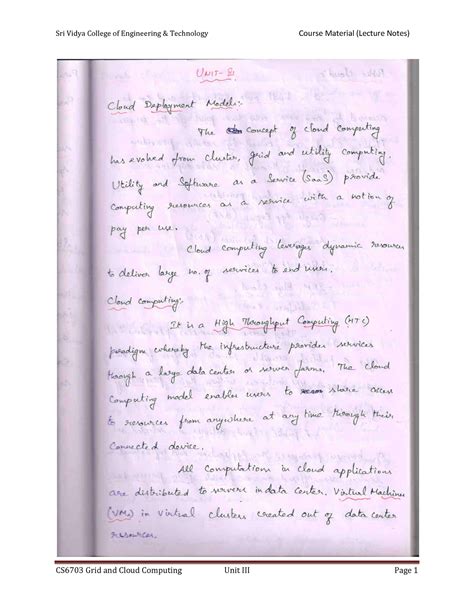 Sri Vidya College of Engineering & Technology Course Material (Lecture Notes)
UNIT - III
Cloud Deployment Models:-
The concept of cloud computing
has evolved from cluster, grid and utility computing.
Utility and Software as a Service (SaaS) provide
Computing resources as a service with a notion of
pay per use.
Cloud computing leverages dynamic resources
to deliver large no. of services to end users.
Cloud computing:-
It is a High Throughput Computing (HTC)
paradigm whereby the infrastructure provides services
through a large data center or server farms. The cloud
Computing model enables users to share access
to resources from anywhere at any time through their
Connected device.
All Computations in cloud applications
are distributed to servers in data center. Virtual Machine
(VMs) in virtual clusters created out of data center
resources.
CS6703 Grid and Cloud Computing Unit III Page 1